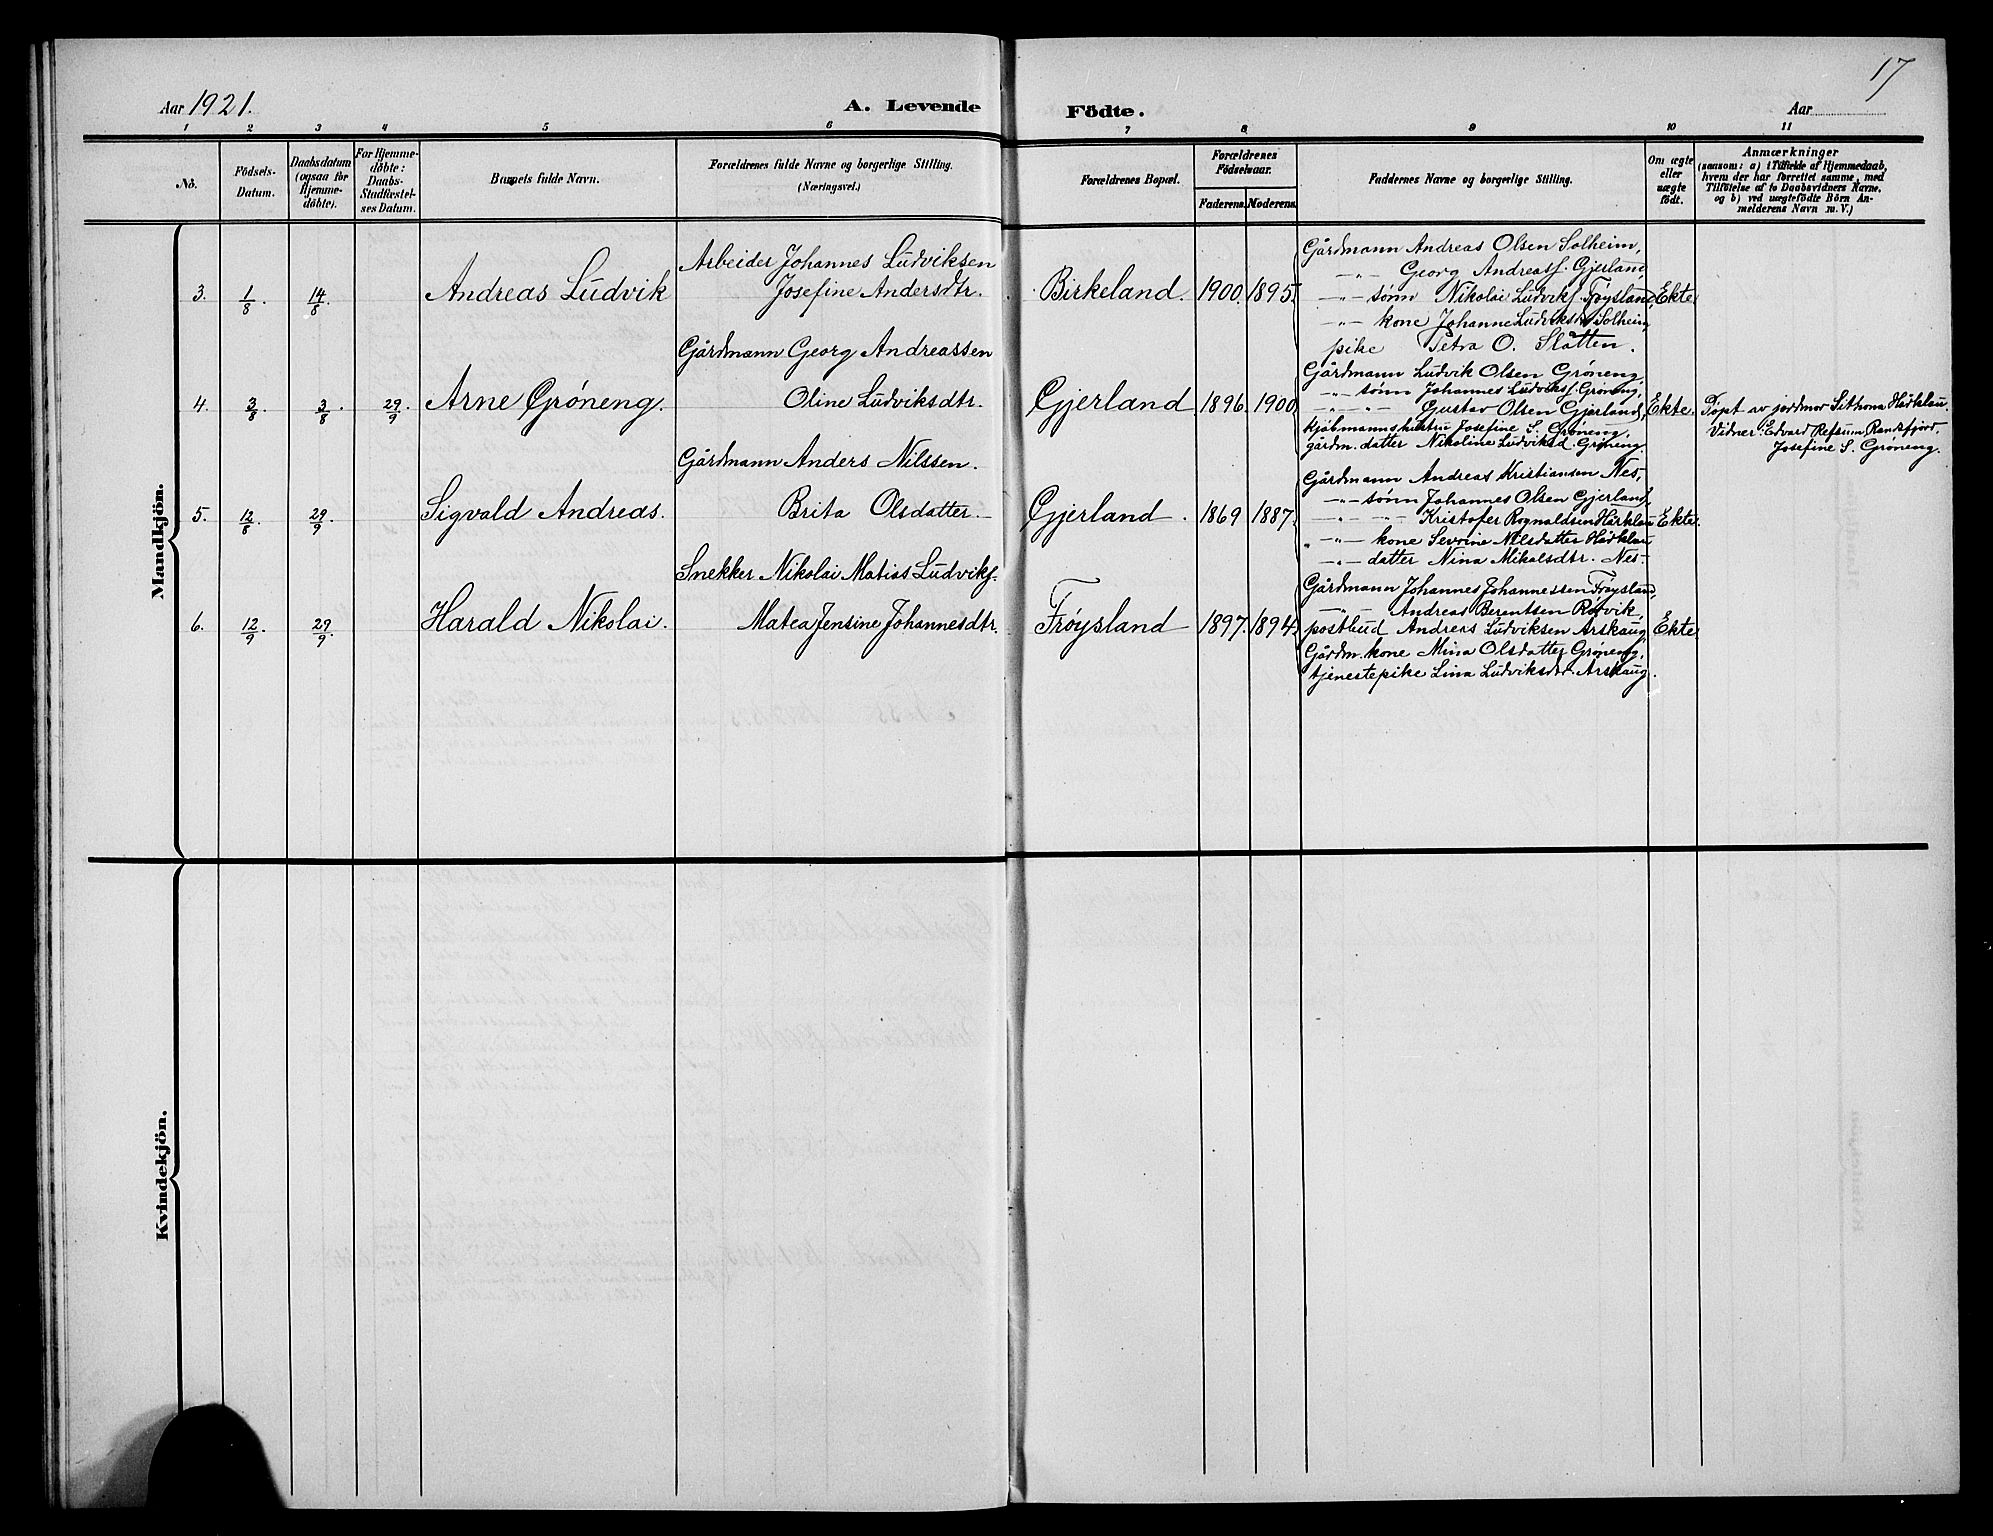 17
Aar 1921.
A. Levende
Födte.
Aar
1 2 3 4 5 6 7 8 9 10 11
No.
Födsels-Datum.
Daabsdatum (ogsaa for Hjemme-döbte).
For Hjemme-döbte: Daabs-Stadfæstel-ses Datum.
Barnets fulde Navn.
Forældrenes fulde Navne og borgerlige Stilling.
(Næringsvei.)
Forældrenes Bopæl.
Forældrenes Födselsaar.
Faderens. Moderens.
Faddernes Navne og borgerlige Stilling.
Om ægte eller uægte födt.
Anmærkninger
(saasom: a) i Tilfælde af Hjemmedaab,
hvem der har forrettet samme, med
Tilföielse af to Daabsvidners Navne,
og b) ved uægtefödte Börn An-
melderens Navn m. V.)
Mandkjön.
3. 1/8. 14/8. Andreas Ludvik
Arbeider Johannes Ludviksen
Josefine Andersdtr.
Birkeland. 1900. 1895.
Gårdmann Andreas Olsen Solheim,
-"- Georg Andreass. Gjerland,
-"- sönn Nikolai Ludviks. Frøysland,
-"- kone Johanne Ludviksd. Solheim,
pike Petra O. Slåtten.
Ekte
4. 3/8. 3/8. 29/9 Arne Grøneng.
Gårdmann Georg Andreassen
Oline Ludviksdtr.
Gjerland 1896. 1900
Gårdmann Ludvik Olsen Grøneng,
-"- sönn Johannes Ludviks. Grøneng,
-"- "- Gustav Olsen Gjerland,
kjøbmannshustru Josefine S. Grøneng
gårdm. datter Nikoline Ludviksd. Grøneng.
Ekte.
Døpt av jordmor Sithona Hårklau.
Vidner: Edvard Refsum, Randsfjord,
Josefine S. Grøneng.
5. 12/8. 29/9 Sigvald Andreas.
Gårdmann Anders Nilssen.
Brita Olsdatter.
Gjerland. 1869 1887.
Gårdmann Andreas Kristiansen Nes,
-"- sönn Johannes Olsen Gjerland,
-"- "- Kristofer Rognaldsen Hårklau
-"- kone Sevrine Nilsdatter Hårklau
-"- datter Nina Mikalsdtr. Nes.
Ekte.
6. 12/9. 29/9. Harald Nikolai.
Snekker Nikolai Matias Ludviks.
Matea Jensine Johannesdtr.
Frøysland 1897. 1894.
Gårdmann Johannes Johannessen Frøysland,
-"- Andreas Berentsen Rørvik,
postbud Andreas Ludviksen Arskaug,
Gårdm. kone Mina Olsdatter Grøneng,
tjenestepike Lina Ludviksdtr. Arskaug.
Ekte
Kvindekjön.